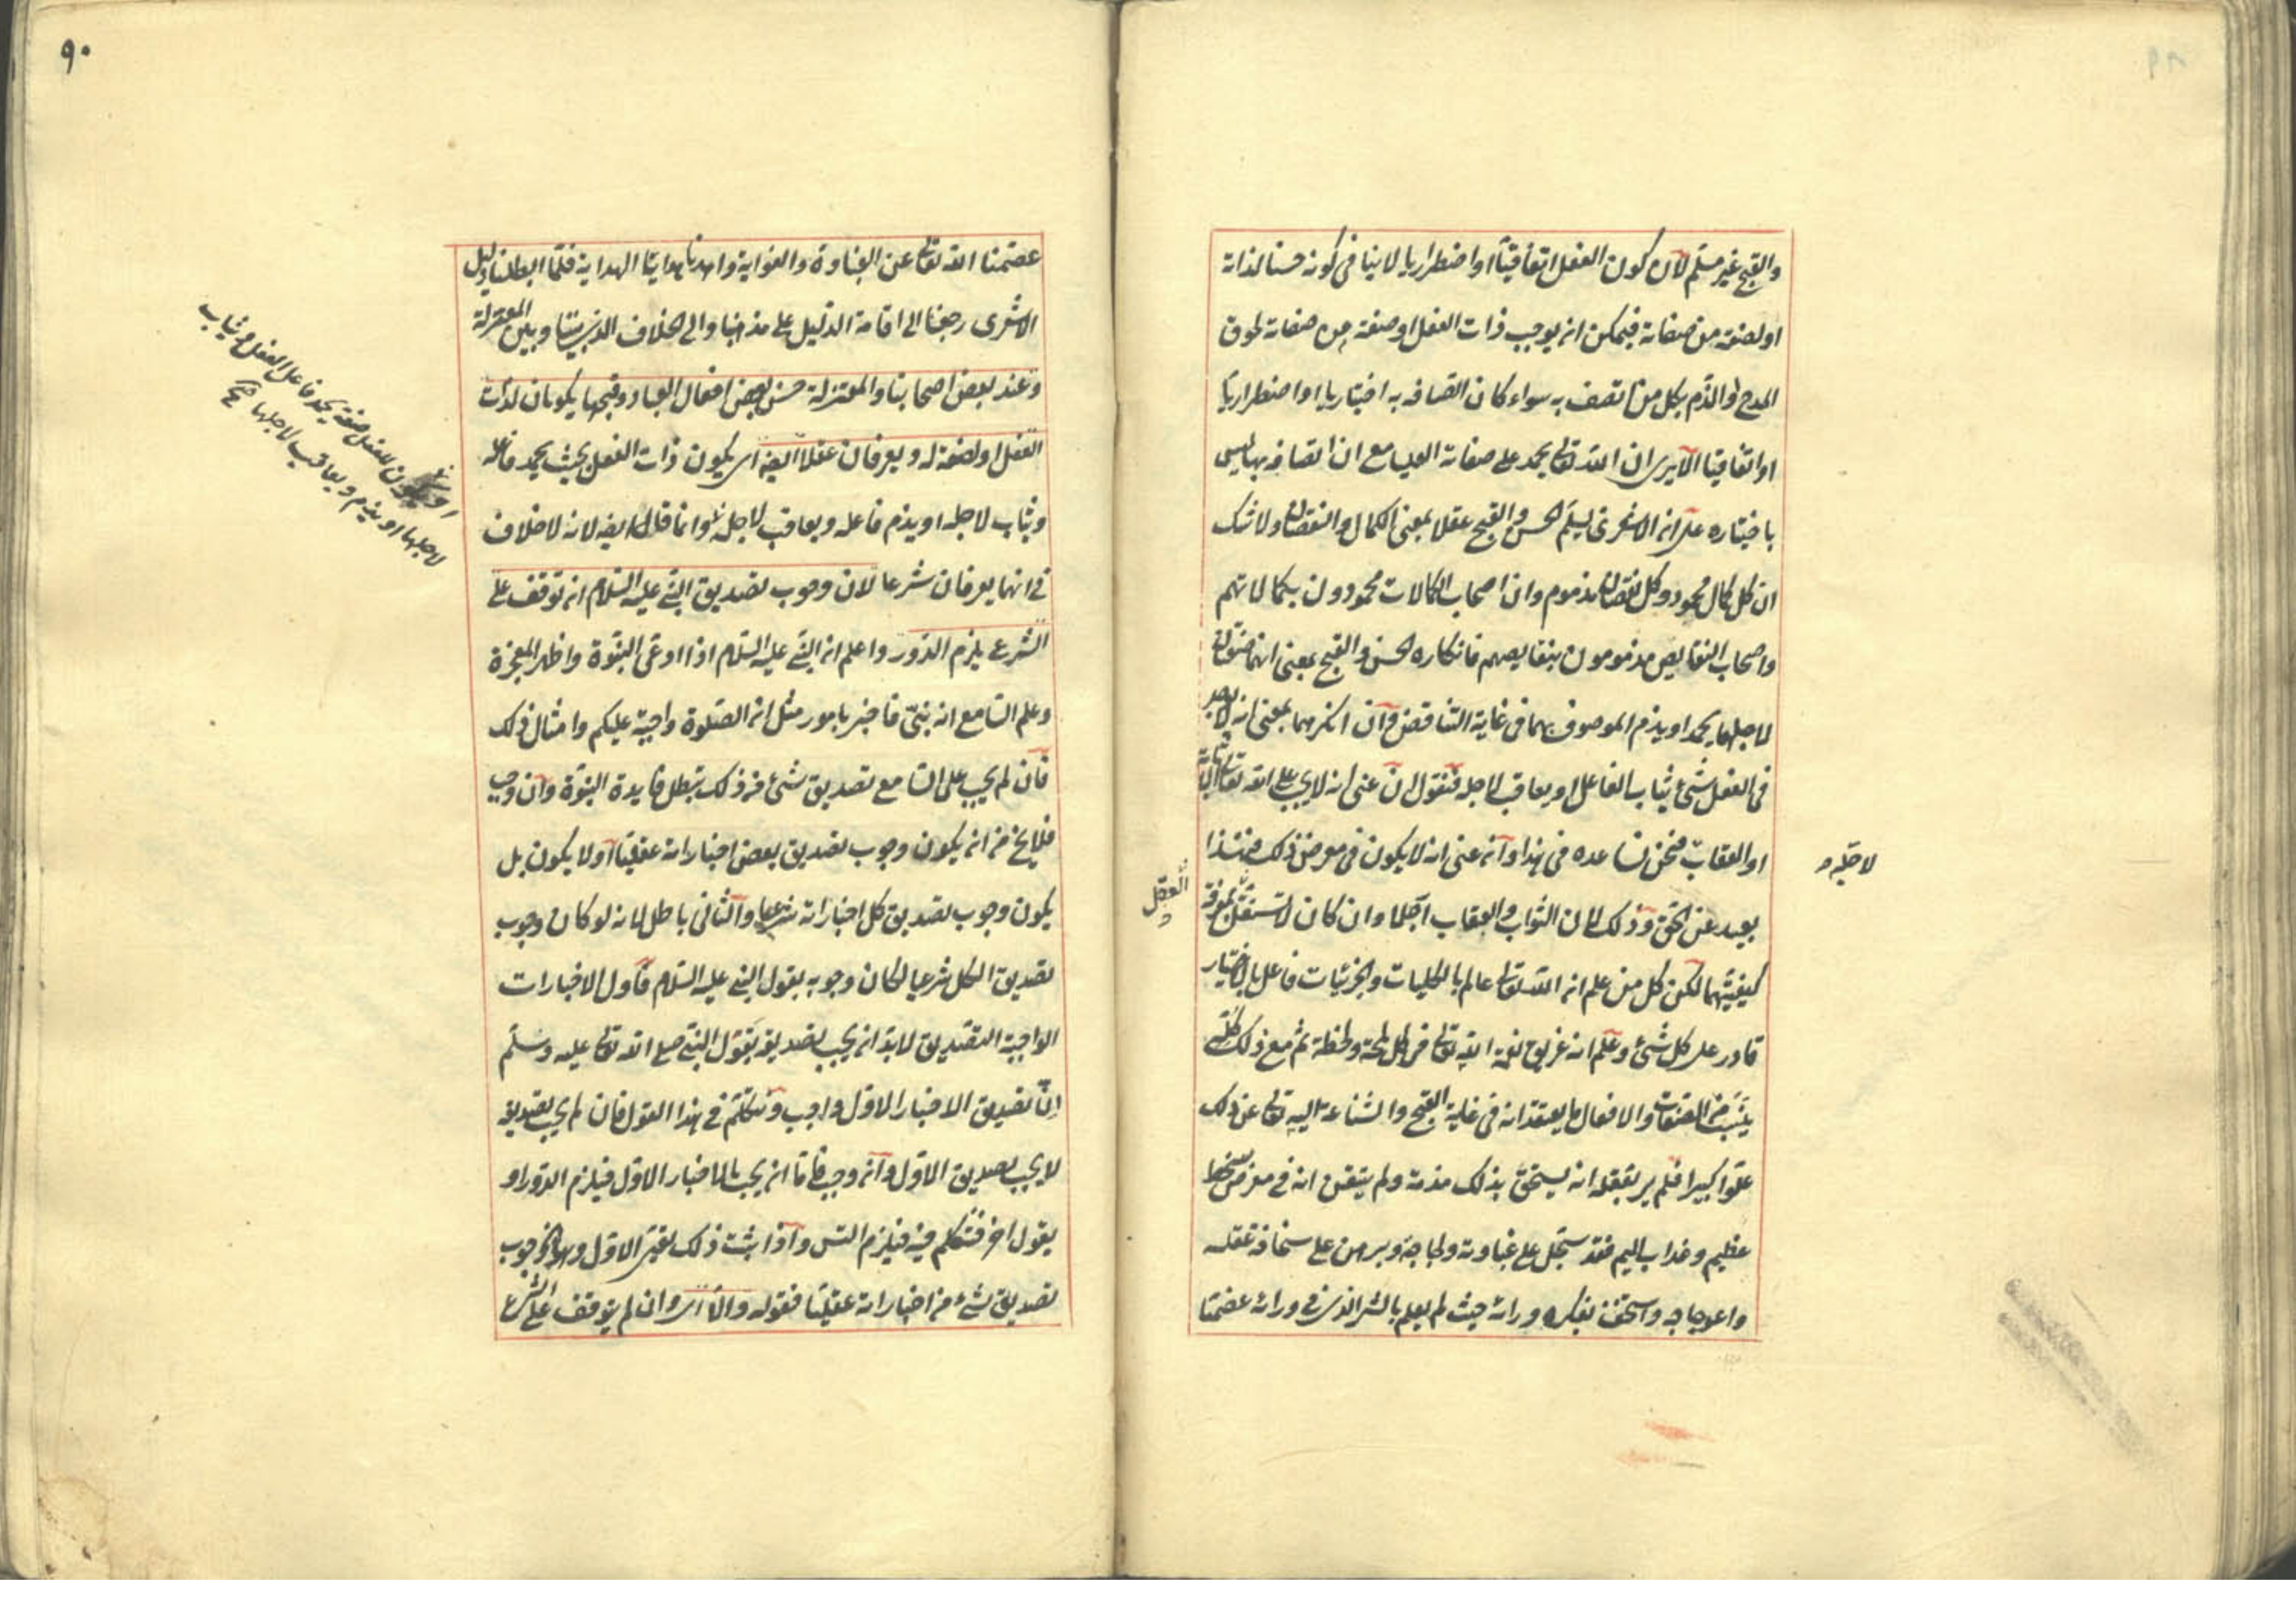 والقبح غير مسلم لان كون الفعل اتفاقيا او اضطراريا لا ينافى كونه حسنا لذاته
او لصفة من صفاته فيمكن ان يوجب ذات الفعل او صفة من صفاته لحوق
المدح والذم بكل من اتصف به سواء كان اتصافه به اختياريا او اضطراريا
او اتفاقيا الا يرى ان الله تعالى يحمد على صفاته العليا مع ان اتصافه بها ليس
باختياره على ان الاشعرى يسلم الحسن والقبح عقلا بمعنى الكمال والنقصان ولا شك
ان كل كمال محمود وكل نقصان مذموم وان اصحاب الكمالات محمودون بكمالاتهم
واصحاب النقايص مذمومون بنقايصهم فانكاره الحسن والقبح بمعنى انهما صفتان
لاجلهما يحمد او يذم الموصوف بهما فى غاية التناقض وان انكرهما بمعنى انه لا يوجد
فى الفعل شئ يثاب الفاعل او يعاقب لاجله فنقول ان عنى انه لا يجب على الله تعالى الاثابة
او العقاب فنحن نساعده فى هذا وان عنى انه لا يكون فى معرض ذلك فهذا
لاجله و
بعيد عن الحق وذلك لان الثواب والعقاب آجلا وان كان لا يستقل بمعرفة
العقل
كيفيتهما لكن كل من علم ان الله تعالى عالم بالكليات والجزئيات فاعل بالاختيار
قادر على كل شئ وعلم انه غريق نعمة الله تعالى فى كل لمحة ولحظة ثم مع ذلك كله
ينسب من الصفات والافعال ما يعتقد انه فى غاية القبح والشناعة اليه تعالى عن ذلك
علوا كبيرا فلم ير بعقله انه يستحق بذلك مذمة ولم يتيقن انه فى معرض سخط
عظيم وعذاب اليم فقد سجل على غباوته ولجاجه وبرهن على سخافة عقله
واعوجاجه واستخف بفكره ورائه حيث لم يعلم بالشر الذى فى ورائه عصمنا
٩٠
عصمنا الله تعالى عن الغباوة والغواية واهدنا هدايتا الهداية فلما ابطلنا دليل
الاشعرى رجعنا الى اقامة الدليل على مذهبنا والى الخلاف الذى بيننا وبين المعتزلة
وعند بعض اصحابنا والمعتزلة حسن بعض افعال العباد وقبحها يكونان لذات
الفعل او لصفة له ويعرفان عقلا ايضا اى يكون ذات الفعل بحيث يحمد فاعله
ويثاب لاجله او يذم فاعله ويعاقب لاجله وانما قال ايضا لانه لا خلاف
او يكون للفعل صفة يحمد فاعل الفعل ويثاب
لاجلها او يذم ويعاقب لاجلها صح
فى انهما يعرفان شرعا لان وجوب تصديق النبى عليه السلام ان توقف على
الشرع يلزم الدور واعلم ان النبى عليه السلام اذا ادعى النبوة واظهر المعجزة
وعلم السامع انه نبى فاخبر بامور مثل ان الصلوة واجبة عليكم وامثال ذلك
فان لم يجب على السامع تصديق شئ من ذلك تبطل فايدة النبوة وان وجب
فلا يخ من ان يكون وجوب تصديق بعض اخباراته عقليا او لا يكون بل
يكون وجوب تصديق كل اخباراته شرعيا والثانى باطل لانه لو كان وجوب
تصديق الكل شرعيا لكان وجوبه بقول النبى عليه السلام فاول الاخبارات
الواجبة التصديق لا بد ان يجب تصديقه بقول النبى صلى الله تعالى عليه وسلم
ان تصديق الاخبار الاول واجب ونتكلم فى هذا القول فان لم يجب تصديقه
لا يجب تصديق الاول وان وجب فاما ان يجب بالاخبار الاول فيلزم الدور او
بقول اخر فنتكلم فيه فيلزم التس واذا ثبت ذلك تعين الاول وهو وجوب
تصديق شئ من اخباراته عقليا فقوله والا اى وان لم يتوقف على الشرع